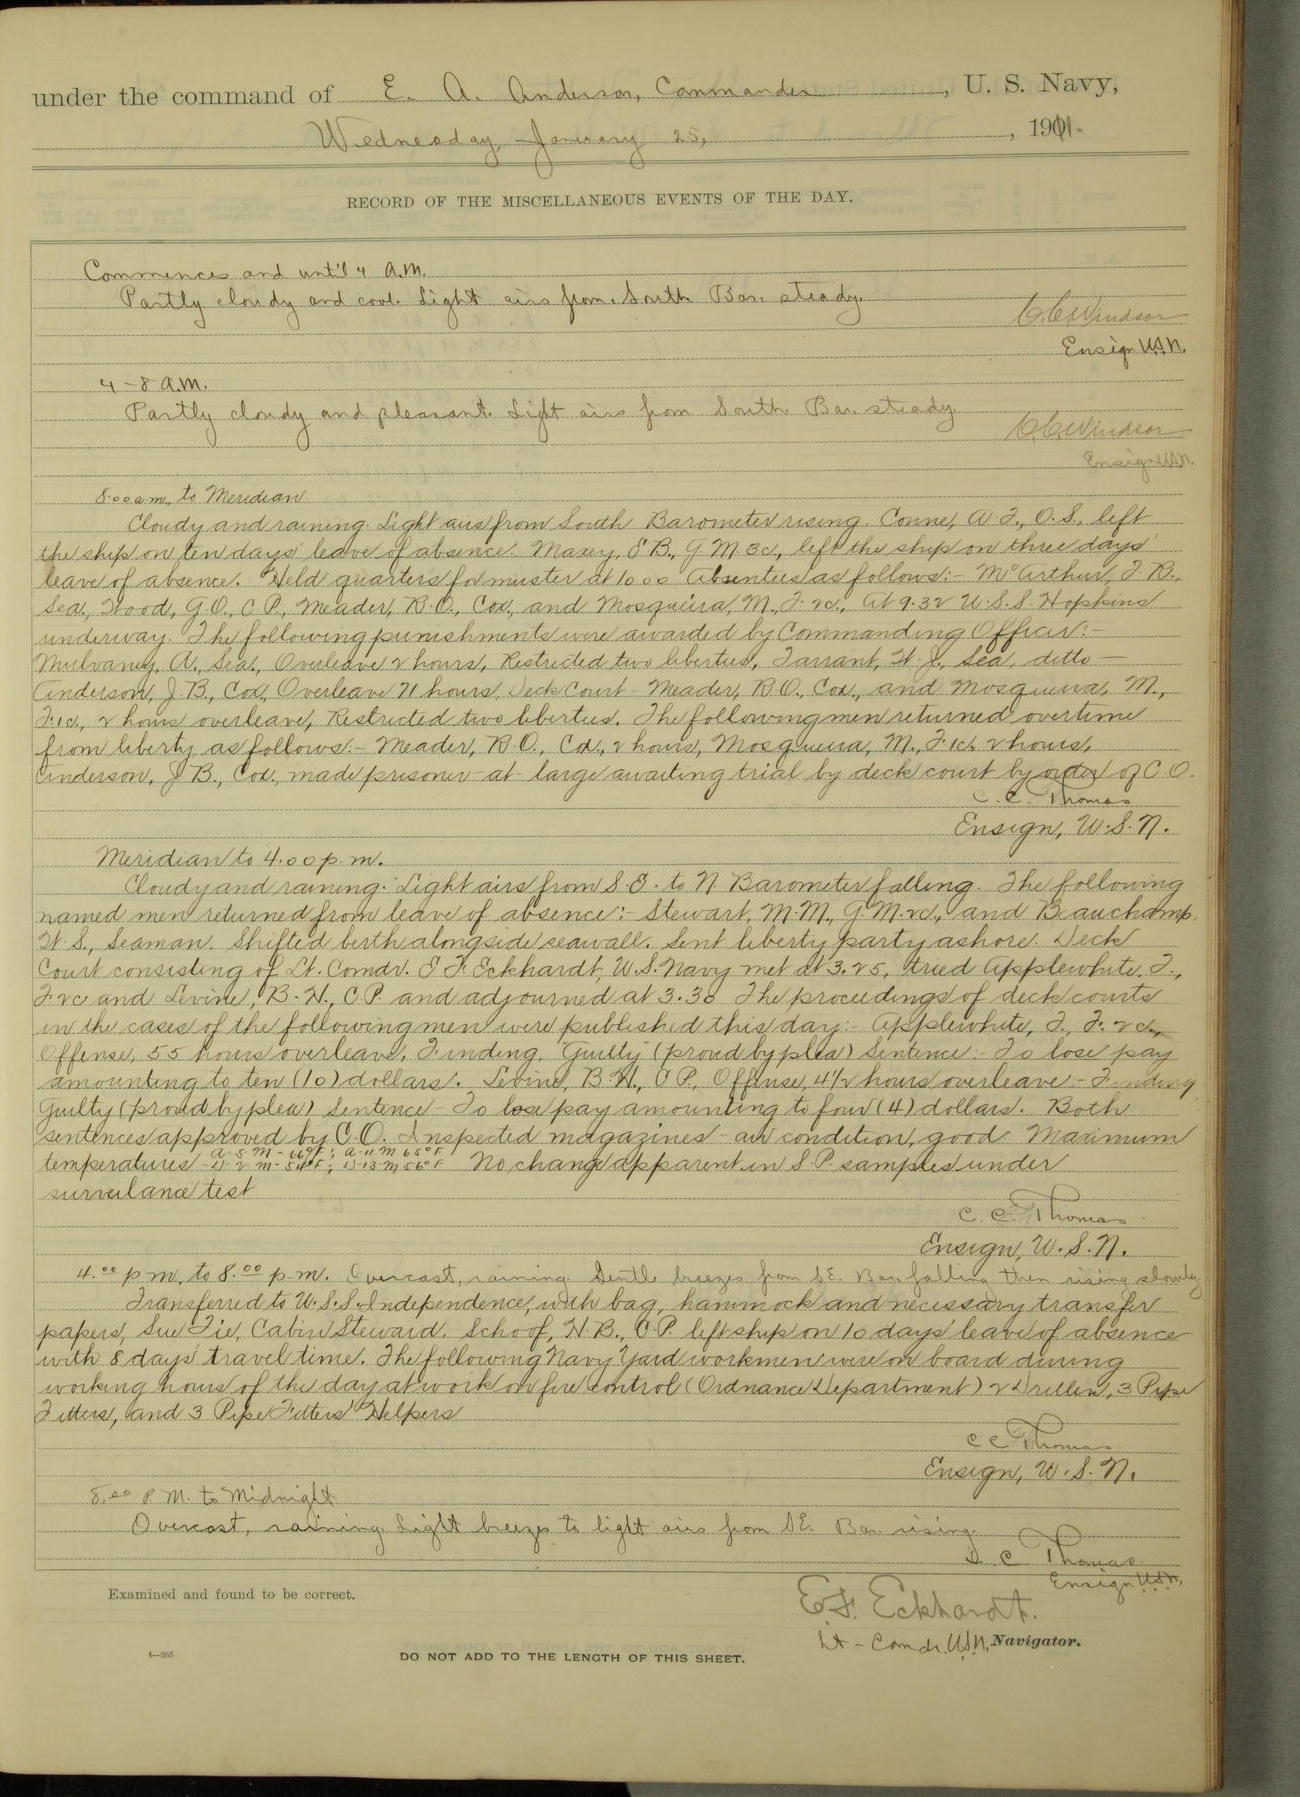 under the command of E. A. Anderson, Commander, U. S. Navy,
Wednesday, January 25, 1911.
RECORD OF THE MISCELLANEOUS EVENTS OF THE DAY.
Commences and until 4 A.M.
Partly cloudy and cool. Light airs from South Bar. steady.
C.C. Windsor
Ensign U.S.N.
4 - 8 A.M.
Partly cloudy and pleasant. Light airs from South. Bar. steady
C.C. Windsor
Ensign U.S.N.
8.00 a.m. to Meridian
Cloudy and raining. Light airs from South Barometer rising. Conne, A.F., O.S. left
the ship on ten days' leave of absence. Maxey, E B., G M 3c, left the ship on three days'
leave of absence. Held quarters for muster at 10.00 Absentees as follows:- McArthur, J. B.,
Sea., Wood, G.O., C.P., Meader, R.O., Cox, and Mosqueira, M., F. 2c., At 9.32 U.S.S. Hopkins
underway. The following punishments were awarded by Commanding Officer:-
Mulvaney, A., Sea., Overleave 2 hours, Restricted two liberties, Tarrant, W. J., Sea, ditto -
Anderson, J. B., Cox, Overleave 71 hours, Deck Court - Meader, R.O., Cox., and Mosqueira, M.,
F.1c., 2 hours overleave, Restricted two liberties. The following men returned overtime
from liberty as follows:- Meader, R.O., Cox., 2 hours, Mosqueira, M., F.1c. 2 hours,
Anderson, J. B., Cox., made prisoner at large awaiting trial by deck court by order of C.O.
C. C. Thomas
Ensign, U.S.N.
Meridian to 4.00 p.m.
Cloudy and raining. Light airs from S.E. to N. Barometer falling. The following
named men returned from leave of absence:- Stewart, M.M., G.M. 2c., and Beauchamp,
W.S., Seaman. Shifted berth alongside seawall. Sent liberty party ashore. Deck
Court consisting of Lt. Comdr. E F. Eckhardt, U.S. Navy met at 3.25, tried Applewhite, F.,
F. 2c and Levine, B. H., C.P. and adjourned at 3.30 The proceedings of deck courts
in the cases of the following men were published this day:- Applewhite, F., F. 2 c.,
Offense, 55 hours overleave, Finding, "Guilty" (proved by plea) Sentence:- To lose pay
amounting to ten (10) dollars. Levine, B H., C P., Offense, 4 1/2 hours overleave - Finding
Guilty (proved by plea) Sentence - To lose pay amounting to four (4) dollars. Both
sentences approved by C.O. Inspected magazines - air condition, good Maximum
temperatures A-5 M - 66°F; A-11 M 65°F D-2 M - 54°F; D-13-M, 56°F No change apparent in S.P. samples under
surveilance test
C. C. Thomas
Ensign, U.S.N.
4.00 p m. to 8.00 p. m. Overcast, raining. Gentle breezes from SE. Bar falling then rising slowly
Transferred to U.S.S. Independence, with bag, hammock and necessary transfer
papers, Sue Tie, Cabin Steward. Schoof, H. B., C.P. left ship on 10 days' leave of absence
with 8 days' travel time. The following Navy Yard workmen were on board during
working hours of the day at work on fire control (Ordnance Department) 2 Drillers, 3 Pipe
Fitters, and 3 Pipe Fitters' Helpers
C C Thomas
Ensign, U.S.N.
8.00 P.M. to Midnight
Overcast, raining. Light breezes to light airs from SE. Bar. rising.
C Thomas
Ensign U.S.N.
Examined and found to be correct.
E.F. Eckhardt.
Lt - Comdr. U.S.N. Navigator.
4—265
DO NOT ADD TO THE LENGTH OF THIS SHEET.